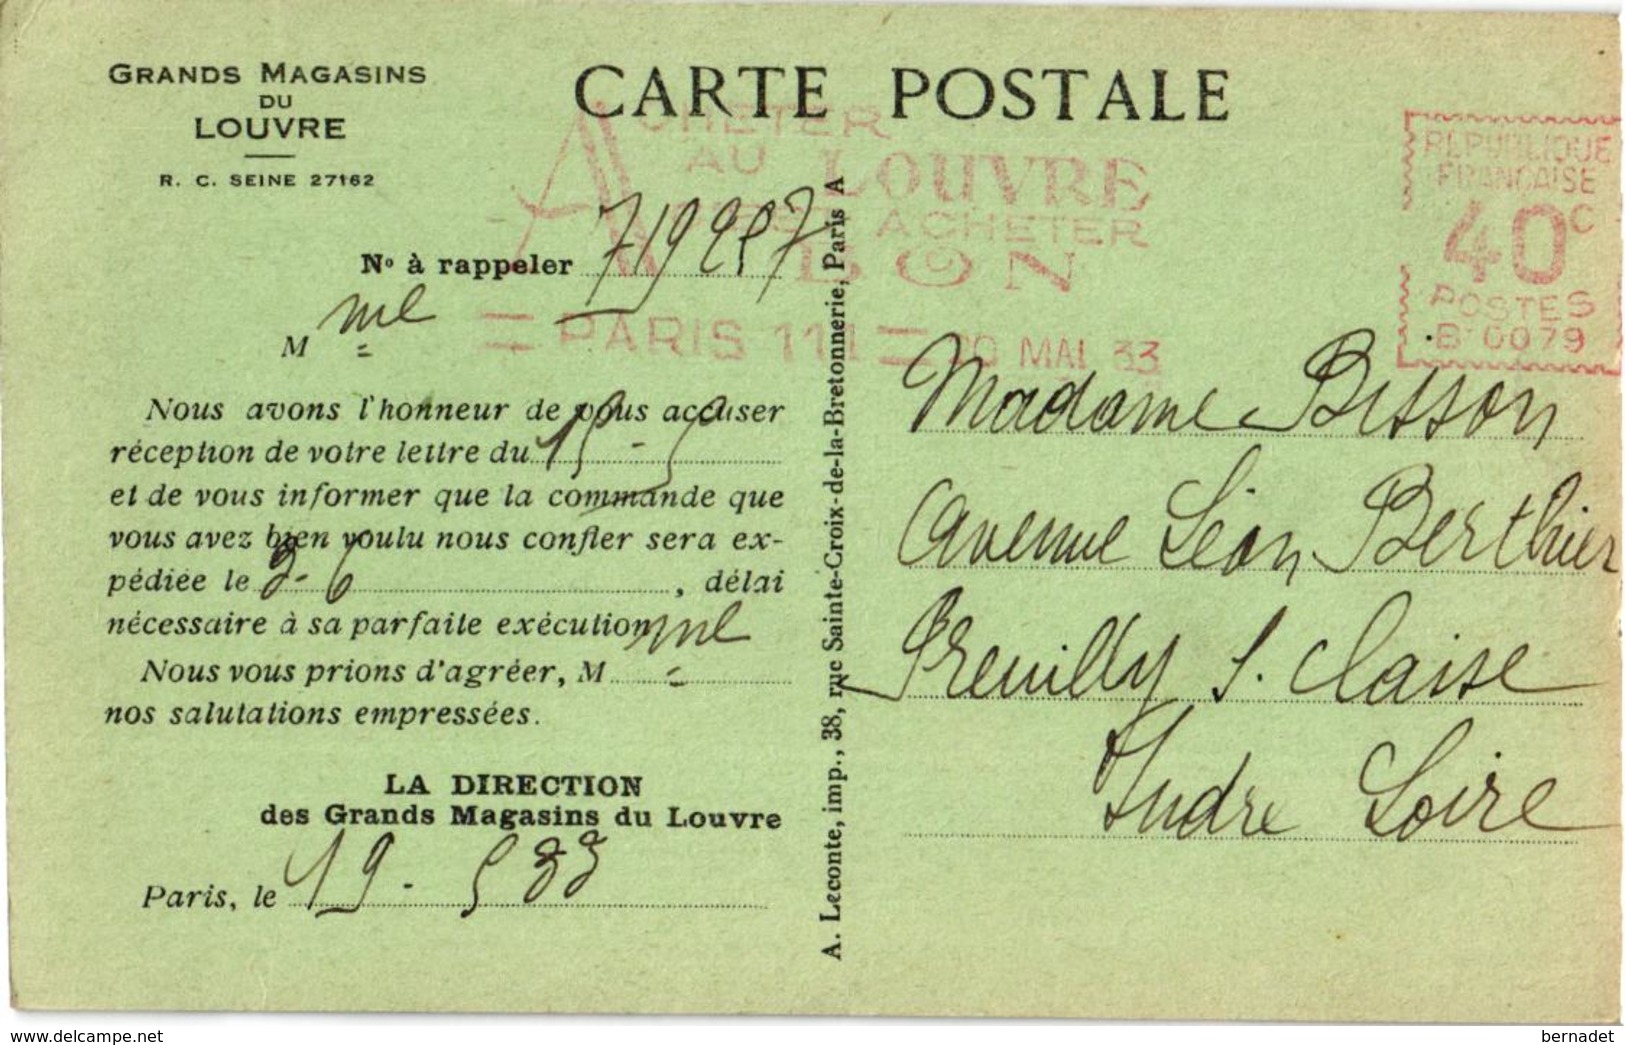 GRANDS MAGASINS
DU
LOUVRE
R. C. SEINE 27162
CARTE POSTALE
ACHETER
AU LOUVRE
C'EST ACHETER
BON
= PARIS 111 = 20 MAI 33
REPUBLIQUE
FRANCAISE
40 C
POSTES
B 0079
N° à rappeler 719257
M me
Nous avons l'honneur de vous accuser
réception de votre lettre du 15 - 5
et de vous informer que la commande que
vous avez bien voulu nous confier sera ex-
pédiée le 3-6, délai
nécessaire à sa parfaite exécution.
Nous vous prions d'agréer, M me
nos salutations empressées.
LA DIRECTION
des Grands Magasins du Louvre
Paris, le 19 - 5 33
A. Leconte, imp., 38, rue Sainte-Croix-de-la-Bretonnerie, Paris A
Madame Bisson
Avenue Léon Berthier
Preuilly s. Claise
Indre Loire
www.delcampe.net
bernadet